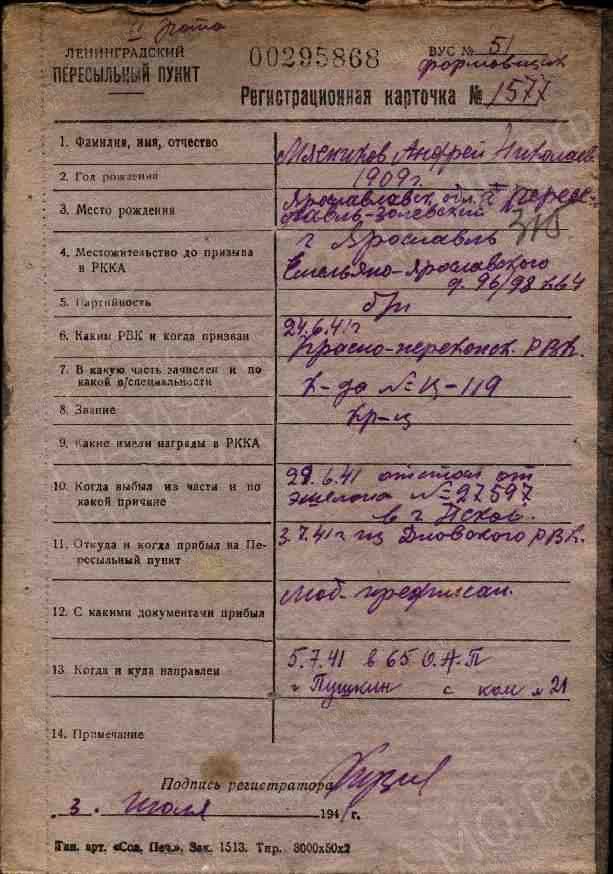 II рота
ЛЕНИНГРАДСКИЙ
ПЕРЕСЫЛЬНЫЙ ПУНКТ
00295868
ВУС № 51
формовщик
Регистрационная карточка № 1577
1. Фамилия, имя, отчество
Мясников Андрей Николаев.
2. Год рождения
1909 г.
3. Место рождения
Ярославск. обл.
310
4. Местожительство до призыва
в РККА
г Ярославль
Емельяно-Ярославского
д. 96/98 кв 4
5. Партийность
б/п
6. Каким РВК и когда призван
24.6.41 г
Красно-перекопск. РВК.
7. В какую часть зачислен и по
какой в/специальности
к-да № Ц-119
8. Звание
кр-ц
9. Какие имели награды в РККА
10. Когда выбыл из части и по
какой причине
29.6.41 отстал от
эшелона № 27597
в г. Псков.
11. Откуда и когда прибыл на Пе-
ресыльный пункт
3.7.41 г из Дновского РВК.
12. С какими документами прибыл
моб-предписан.
13. Когда и куда направлен
5.7.41 в 65 О.А.П
г Пушкин с ком № 21
14. Примечание
Подпись регистратора
„3" июля 1941 г.
Тип. арт. «Сов. Печ.». Зак. 1513. Тир. 3000х50х2